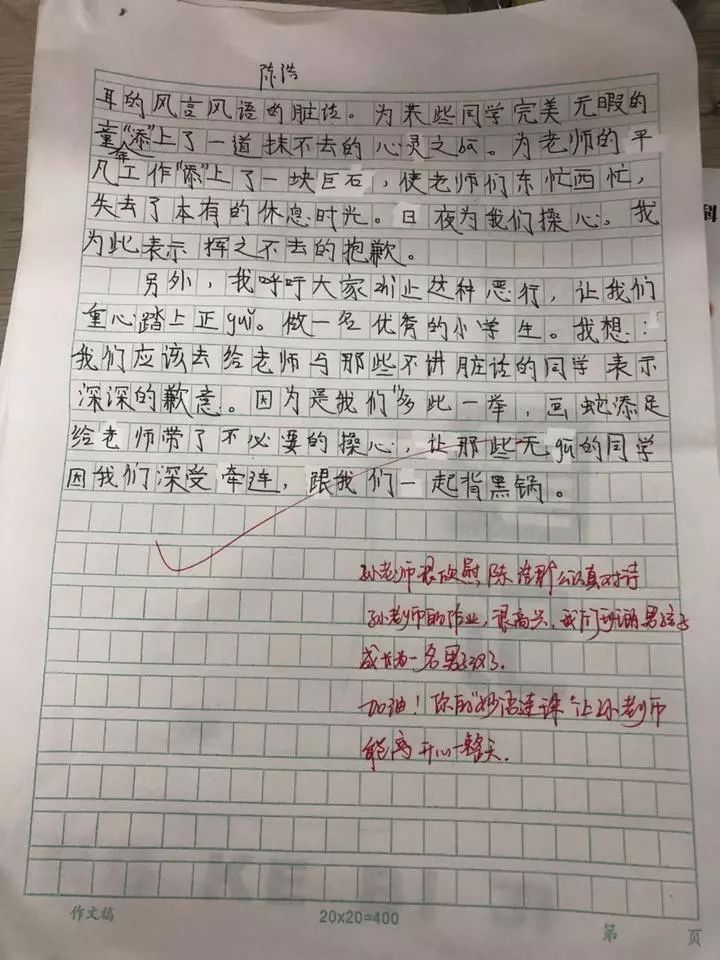 陈浩
耳的风言风语的脏话。为某些同学完美无暇的
童年"添"上了一道抹不去的心灵之ba。为老师的平
凡工作"添"上了一块巨石，使老师们东忙西忙，
失去了本有的休息时光。日夜为我们操心。我
为此表示挥之不去的抱歉。
另外，我呼吁大家刹止这种恶行，让我们
重心踏上正gui。做一名优秀的小学生。我想：
我们应该去给老师与那些不讲脏话的同学表示
深深的歉意。因为是我们"多此一举，画蛇添足
给老师带了不必要的操心，让那些无gu的同学
因我们深受牵连，跟我们一起背黑锅。
孙老师很欣慰陈浩那么认真对待
孙老师的作业，很高兴，我们班的男孩子
成长为一名男子汉了.
加油！你的"妙语连珠"让孙老师
能高开心一整天.
作文稿
20x20=400
第 页